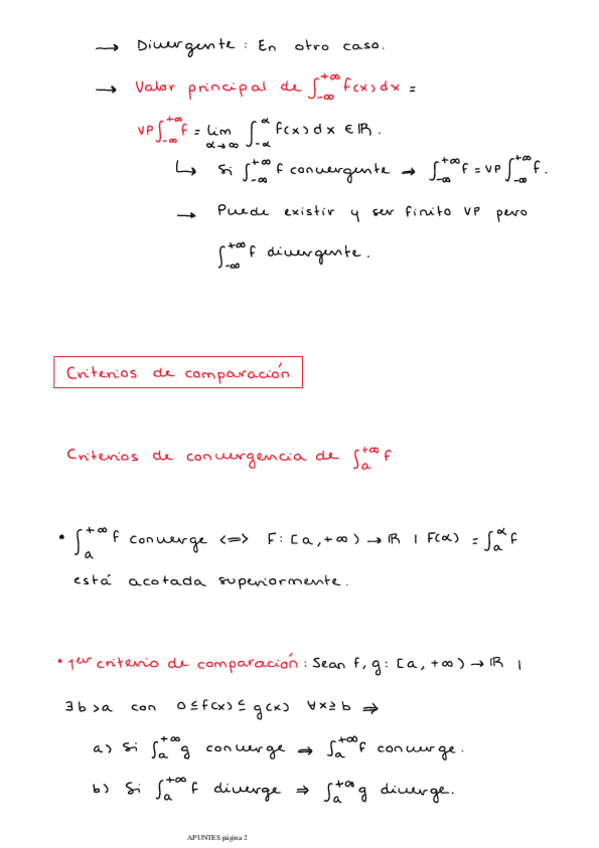 → Divergente : En otro caso.
→ Valor principal de ∫_{-∞}^{+∞} f(x)dx =
VP∫_{-∞}^{+∞} f = lim_{α→∞} ∫_{-α}^{α} f(x)dx ∈ ℝ.
↳ Si ∫_{-∞}^{+∞} f convergente → ∫_{-∞}^{+∞} f = VP∫_{-∞}^{+∞} f.
→ Puede existir y ser finito VP pero
∫_{-∞}^{+∞} f divergente.
Criterios de comparación
Criterios de convergencia de ∫_{a}^{+∞} f
• ∫_{a}^{+∞} f converge <=> F: [a, +∞) → ℝ | F(α) = ∫_{a}^{α} f
está acotada superiormente.
• 1er criterio de comparación : Sean f, g : [a, +∞) → ℝ |
∃b>a con 0≤f(x)≤g(x) ∀x≥b ⇒
a) Si ∫_{a}^{+∞} g converge ⇒ ∫_{a}^{+∞} f converge.
b) Si ∫_{a}^{+∞} f diverge ⇒ ∫_{a}^{+∞} g diverge.
APUNTES página 2